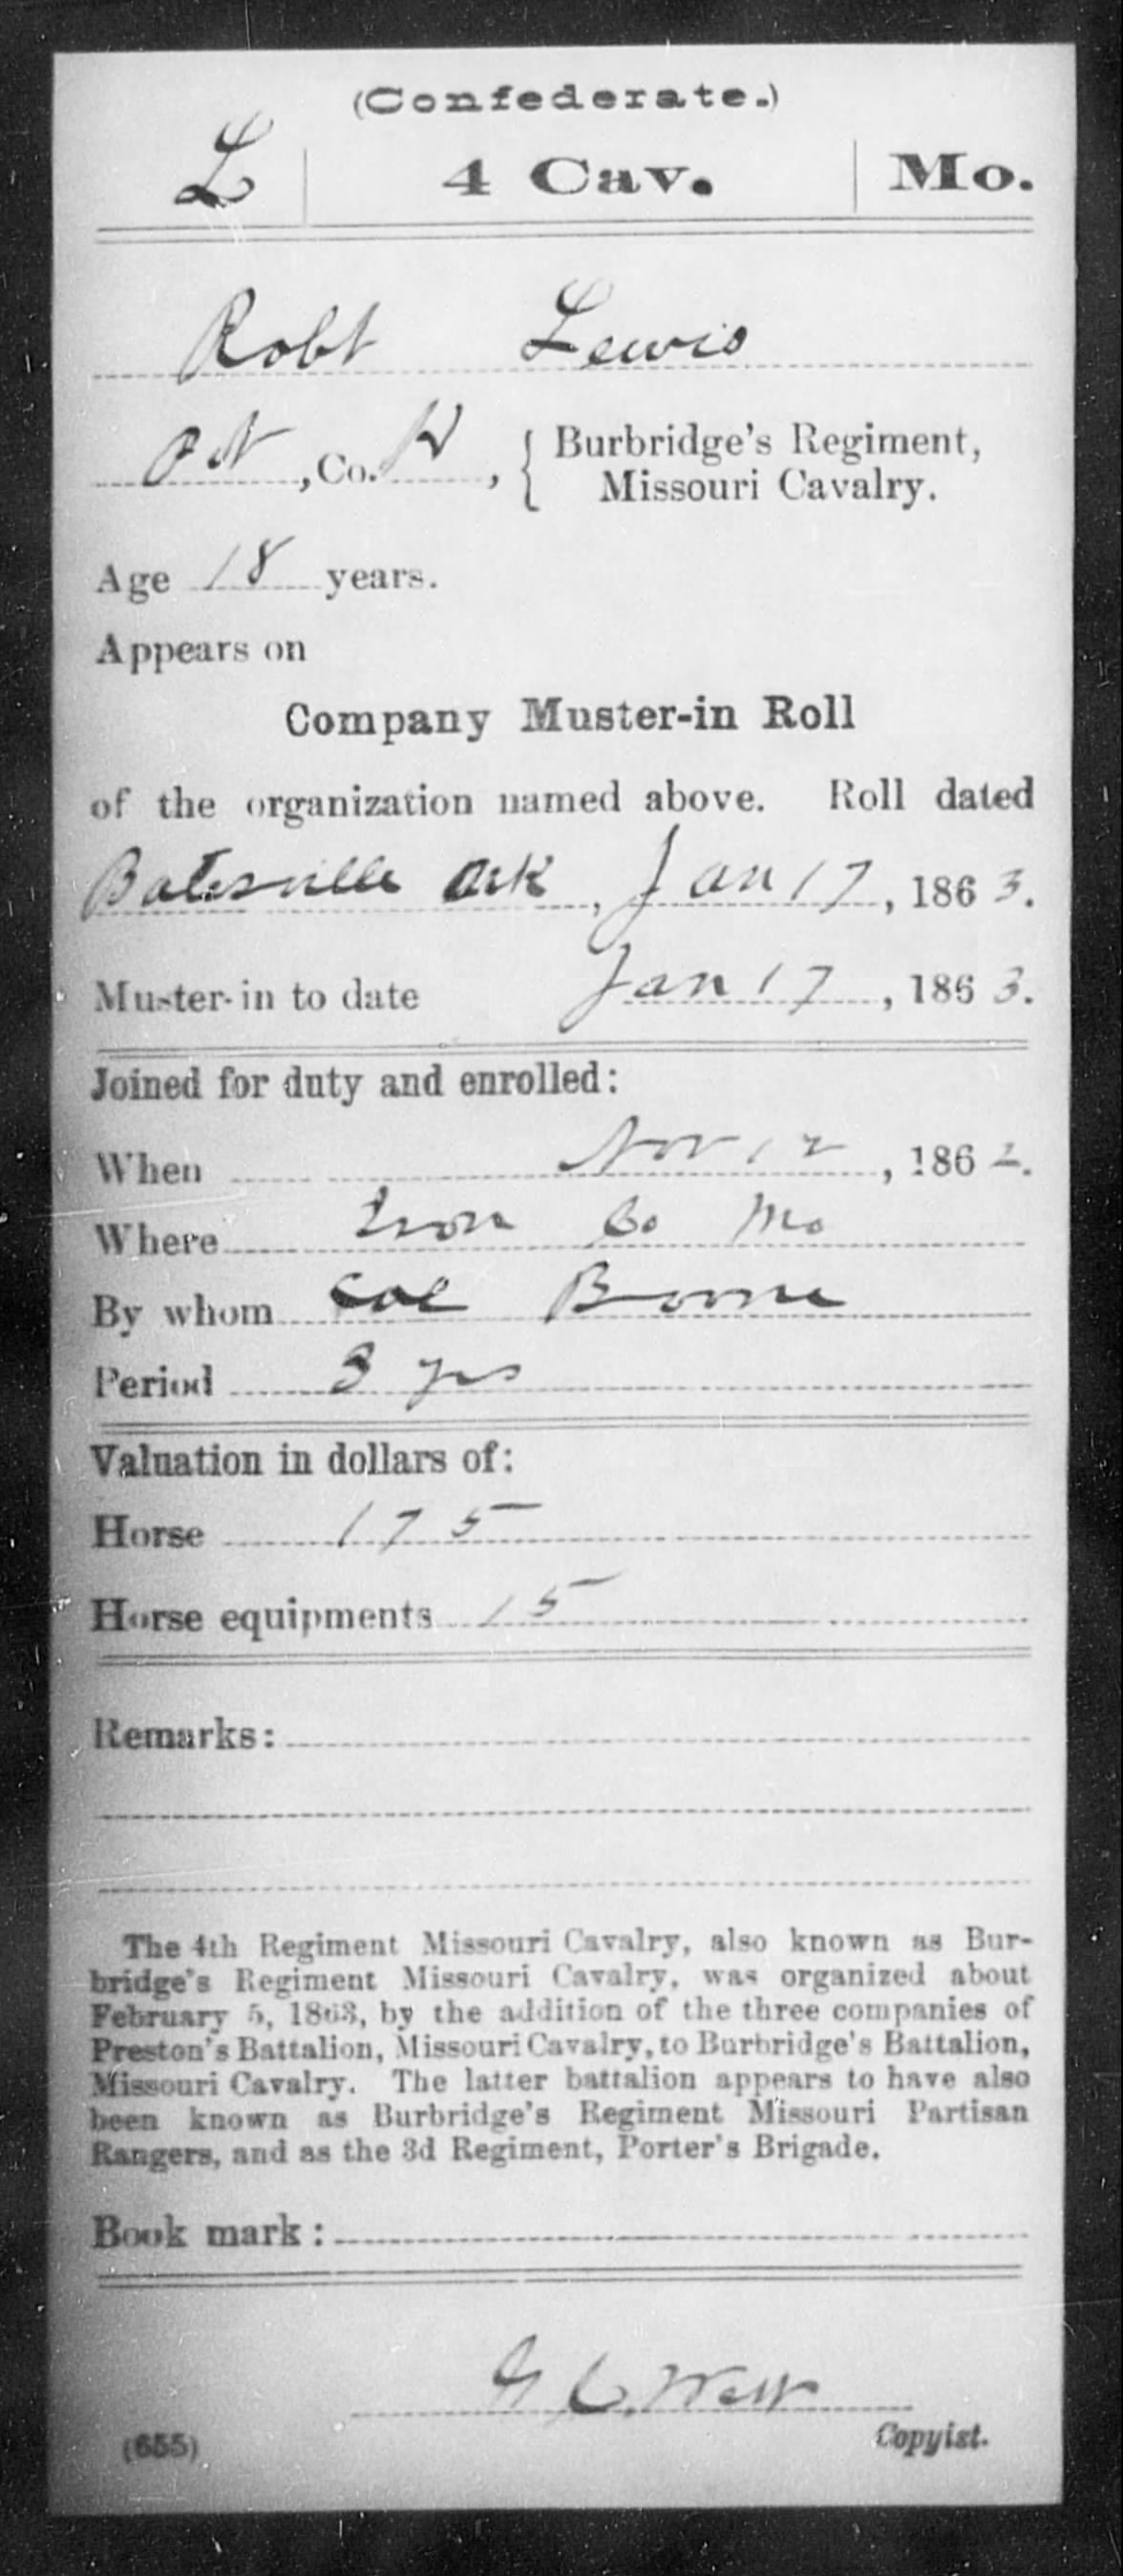 (Confederate.)
L | 4 Cav. | Mo.
Robt Lewis
Pvt, Co. H, { Burbridge's Regiment,
Missouri Cavalry.
Age 18 years.
Appears on
Company Muster-in Roll
of the organization named above. Roll dated
Batesville Ark, Jan 17, 1863.
Muster-in to date Jan 17, 1863.
Joined for duty and enrolled:
When Nov 12, 1862.
Where Iron Co Mo
By whom Col Boone
Period 3 yrs
Valuation in dollars of:
Horse 175
Horse equipments 15
Remarks:
The 4th Regiment Missouri Cavalry, also known as Bur-
bridge's Regiment Missouri Cavalry, was organized about
February 5, 1863, by the addition of the three companies of
Preston's Battalion, Missouri Cavalry, to Burbridge's Battalion,
Missouri Cavalry. The latter battalion appears to have also
been known as Burbridge's Regiment Missouri Partisan
Rangers, and as the 3d Regiment, Porter's Brigade.
Book mark:
(655) Copyist.